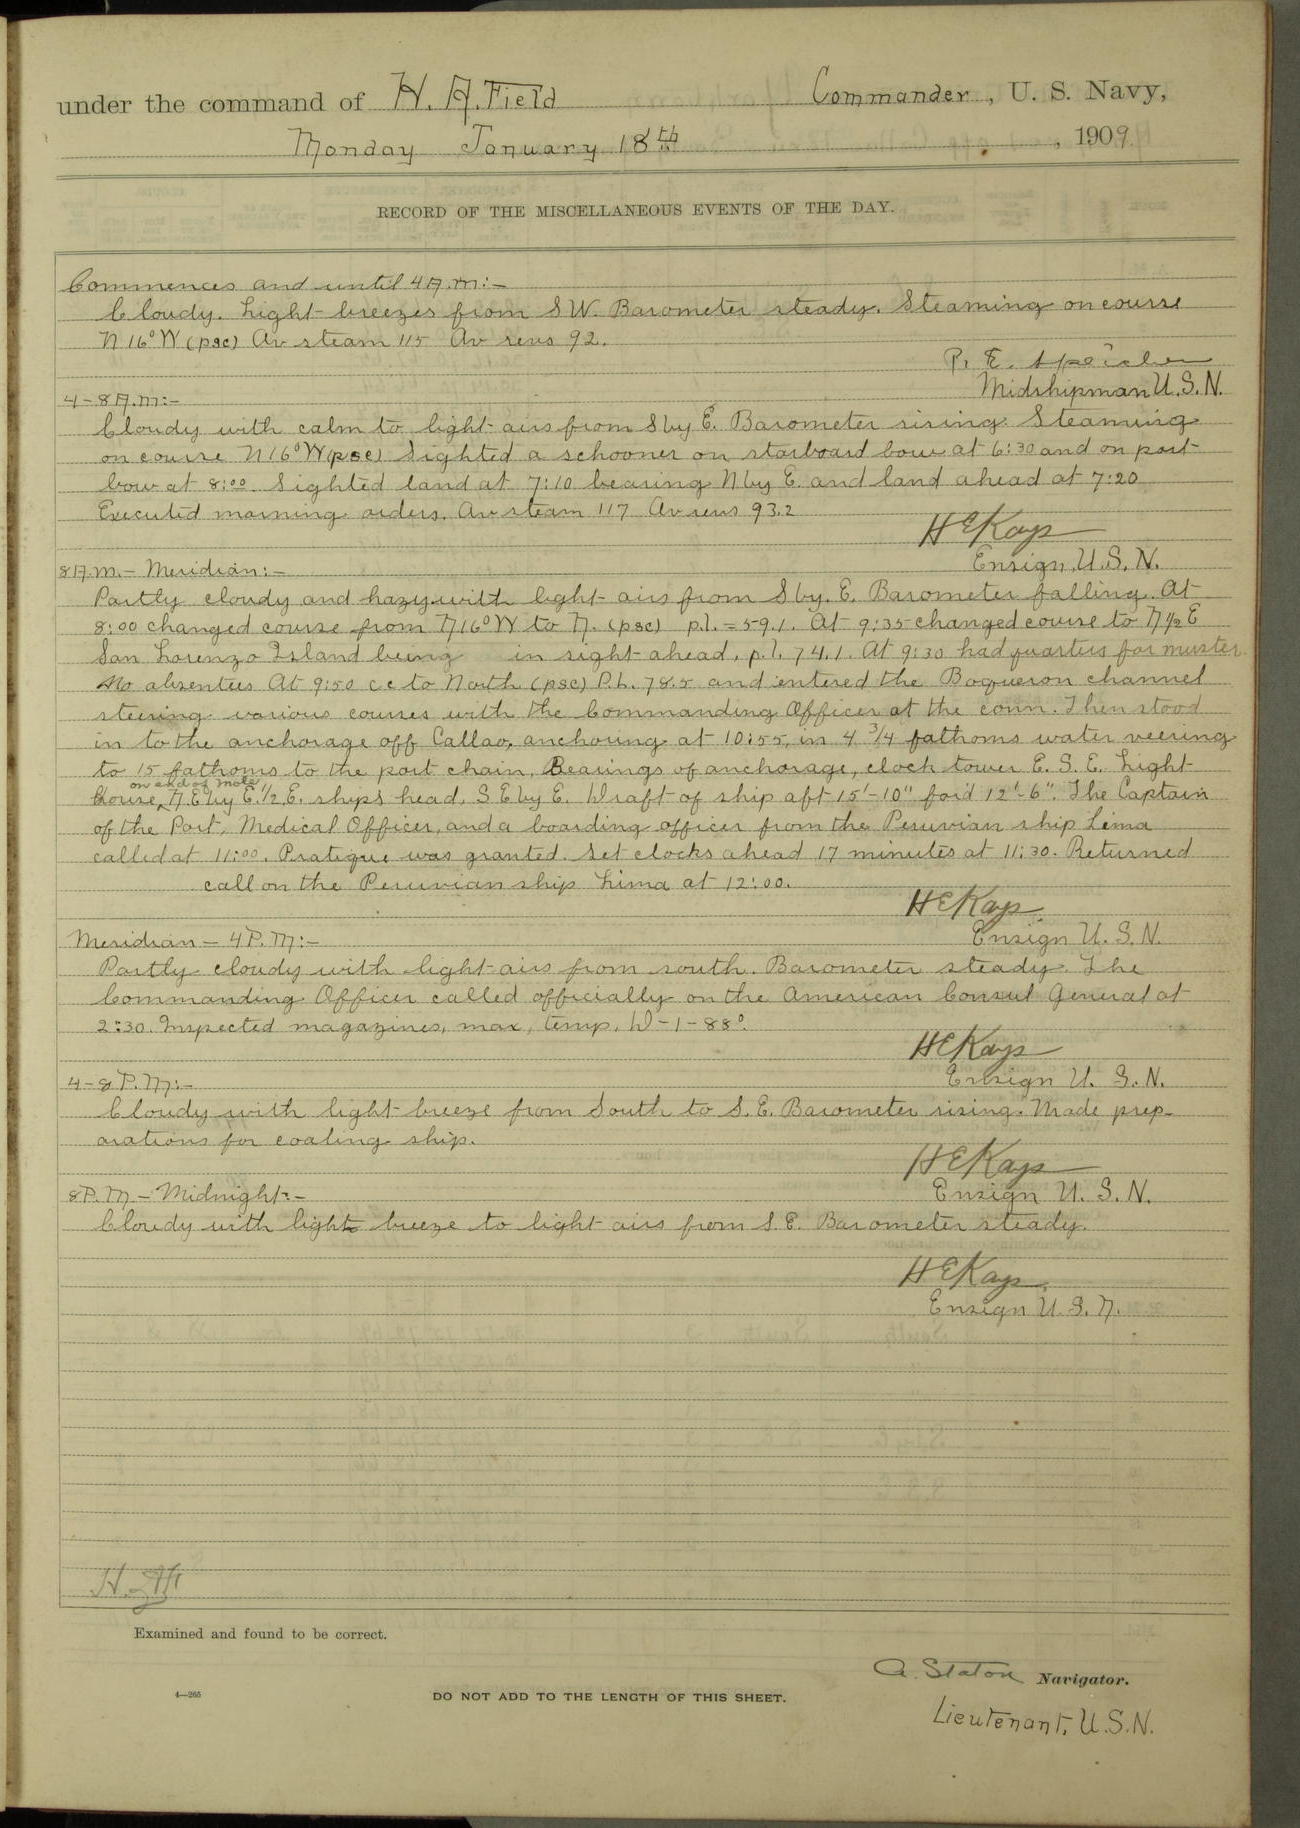 under the command of H. A. Field Commander, U. S. Navy,
Monday January 18th, 1909
RECORD OF THE MISCELLANEOUS EVENTS OF THE DAY.
Commences and until 4 A.M:-
Cloudy. Light breezes from S W. Barometer steady. Steaming on course
N 16° W (psc) Av steam 115 Av revs 92.
P. E. Speicher
Midshipman U.S.N.
4-8 A.M:-
Cloudy with calm to light airs from S by E. Barometer rising. Steaming
on course N 16° W (psc) Sighted a schooner on starboard bow at 6:30 and on port
bow at 8:00. Sighted land at 7:10 bearing N by E. and land ahead at 7:20
Executed morning orders. Av steam 117 Av revs 93.2
H E Kays
Ensign, U.S.N.
8 A.M.- Meridian:-
Partly cloudy and hazy with light airs from S by. E. Barometer falling. At
8:00 changed course from N 16° W to N. (psc) p.l. = 59.1. At 9:35 changed course to N ½ E
San Lorenzo Island being in sight ahead, p.l. 74.1. At 9:30 had quarters for muster
No absentees At 9:50 c c to North (psc) P.L. 78.5 and entered the Boqueron channel
steering various courses with the Commanding Officer at the conn. Then stood
in to the anchorage off Callao, anchoring at 10:55, in 4 3/4 fathoms water veering
to 15 fathoms to the port chain, Bearings of anchorage, clock tower E. S. E. Light
on end of mole
House, N. E by E. ½ E. ship's head, S E by E. Draft of ship aft 15'-10" for'd 12'-6". The Captain
of the Port, Medical Officer, and a boarding officer from the Peruvian ship Lima
called at 11:00. Pratique was granted. Set clocks ahead 17 minutes at 11:30. Returned
call on the Peruvian ship Lima at 12:00.
H E Kays
Ensign U. S. N.
Meridian - 4 P.M:-
Partly cloudy with light airs from south. Barometer steady. The
Commanding Officer called officially on the American Consul General at
2:30. Inspected magazines, max, temp. D-1-88°.
H E Kays
Ensign U. S. N.
4-8 P.M:-
Cloudy with light breeze from South to S. E. Barometer rising. Made prep-
arations for coaling ship.
H E Kays
Ensign U. S. N.
8 P. M - Midnight:-
Cloudy with light breeze to light airs from S. E. Barometer steady.
H E Kays
Ensign U. S. N.
Examined and found to be correct.
A. Staton Navigator.
4—265
DO NOT ADD TO THE LENGTH OF THIS SHEET.
Lieutenant, U.S.N.